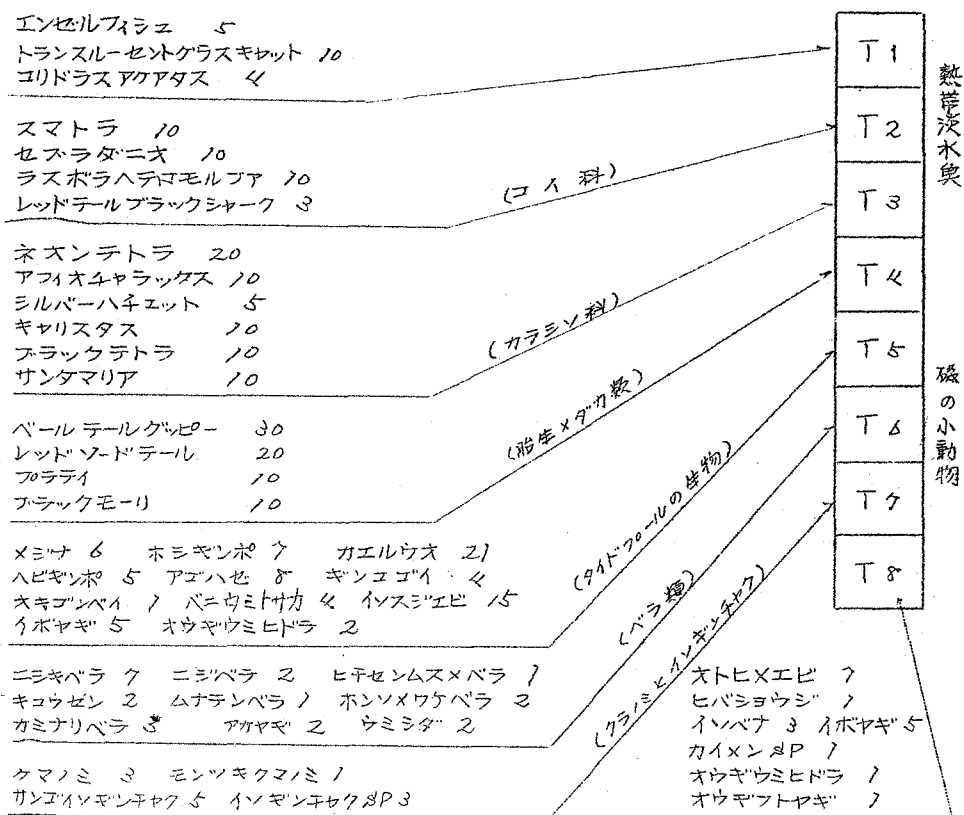 エンゼルフィシュ 5
トランスルーセントグラスキャット 10
コリドラスアクアタス 4
スマトラ 10
ゼブラダニオ 10
ラスボラヘテロモルファ 10
レッドテールブラックシャーク 3
(コイ科)
ネオンテトラ 20
アフィオチャラックス 10
シルバーハチェット 5
キャリスタス 10
ブラックテトラ 10
サンタマリア 10
(カラシン科)
ベールテールグッピー 30
レッドソードテール 20
プラティ 10
ブラックモーリ 10
(胎生メダカ類)
メジナ 6 ホシギンポ 7 カエルウオ 21
ヘビギンポ 5 アゴハゼ 8 ギンユゴイ 4
オキゴンベイ 1 ベニウミトサカ 4 イソスジエビ 15
イボヤギ 5 オウギウミヒドラ 2
(タイドプールの生物)
ニシキベラ 7 ニジベラ 2 ヒチセンムスメベラ 1
キュウセン 2 ムナテンベラ 1 ホンソメワケベラ 2
カミナリベラ 3 アカヤギ 2 ウミシダ 2
(ベラ類)
クマノミ 3 モンツキクマノミ 1
サンゴイソギンチャク 5 イソギンチャクSP 3
(クラノミとイソギンチャク)
T1
T2
T3
T4
T5
T6
T7
T8
熱帯淡水魚
磯の小動物
オトヒメエビ 1
ヒバショウジ 1
イソバナ 3 イボヤギ 5
カイメンSP 1
オウギウミヒドラ 1
オウギフトヤギ 1